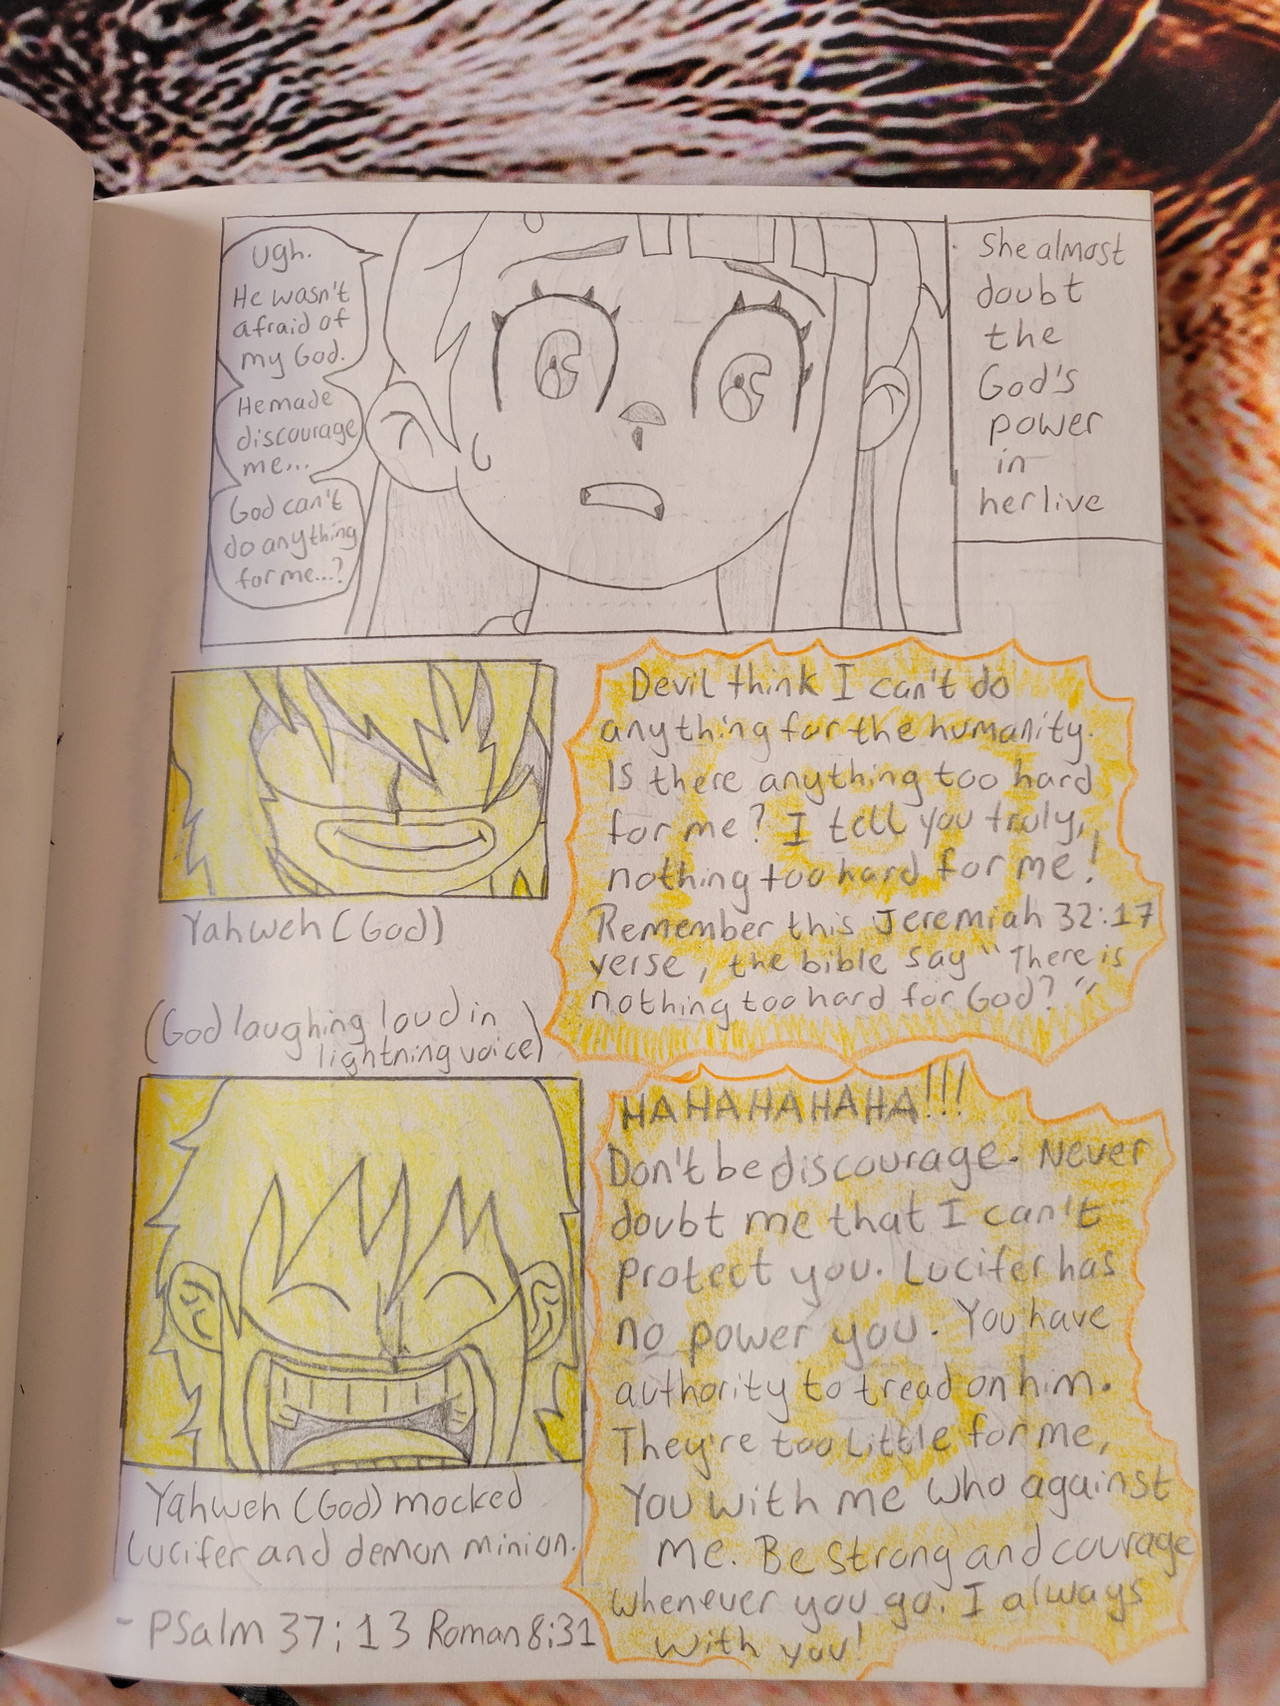 Ugh.
He wasn't
afraid of
my God.
He made
discourage
me...
God can't
do anything
for me...?
She almost
doubt
the
God's
power
in
her live
Devil think I can't do
anything for the humanity.
Is there anything too hard
for me? I tell you truly,
nothing too hard for me!
Remember this Jeremiah 32:17
verse, the bible say "There is
nothing too hard for God?"
Yahweh (God)
(God laughing loud in
lightning voice)
HAHAHAHAHA!!!
Don't be discourage. Never
doubt me that I can't
protect you. Lucifer has
no power you. You have
authority to tread on him.
They're too little for me,
You with me who against
me. Be strong and courage
whenever you go. I always
with you!
Yahweh (God) mocked
Lucifer and demon minion.
- Psalm 37:13 Roman 8:31